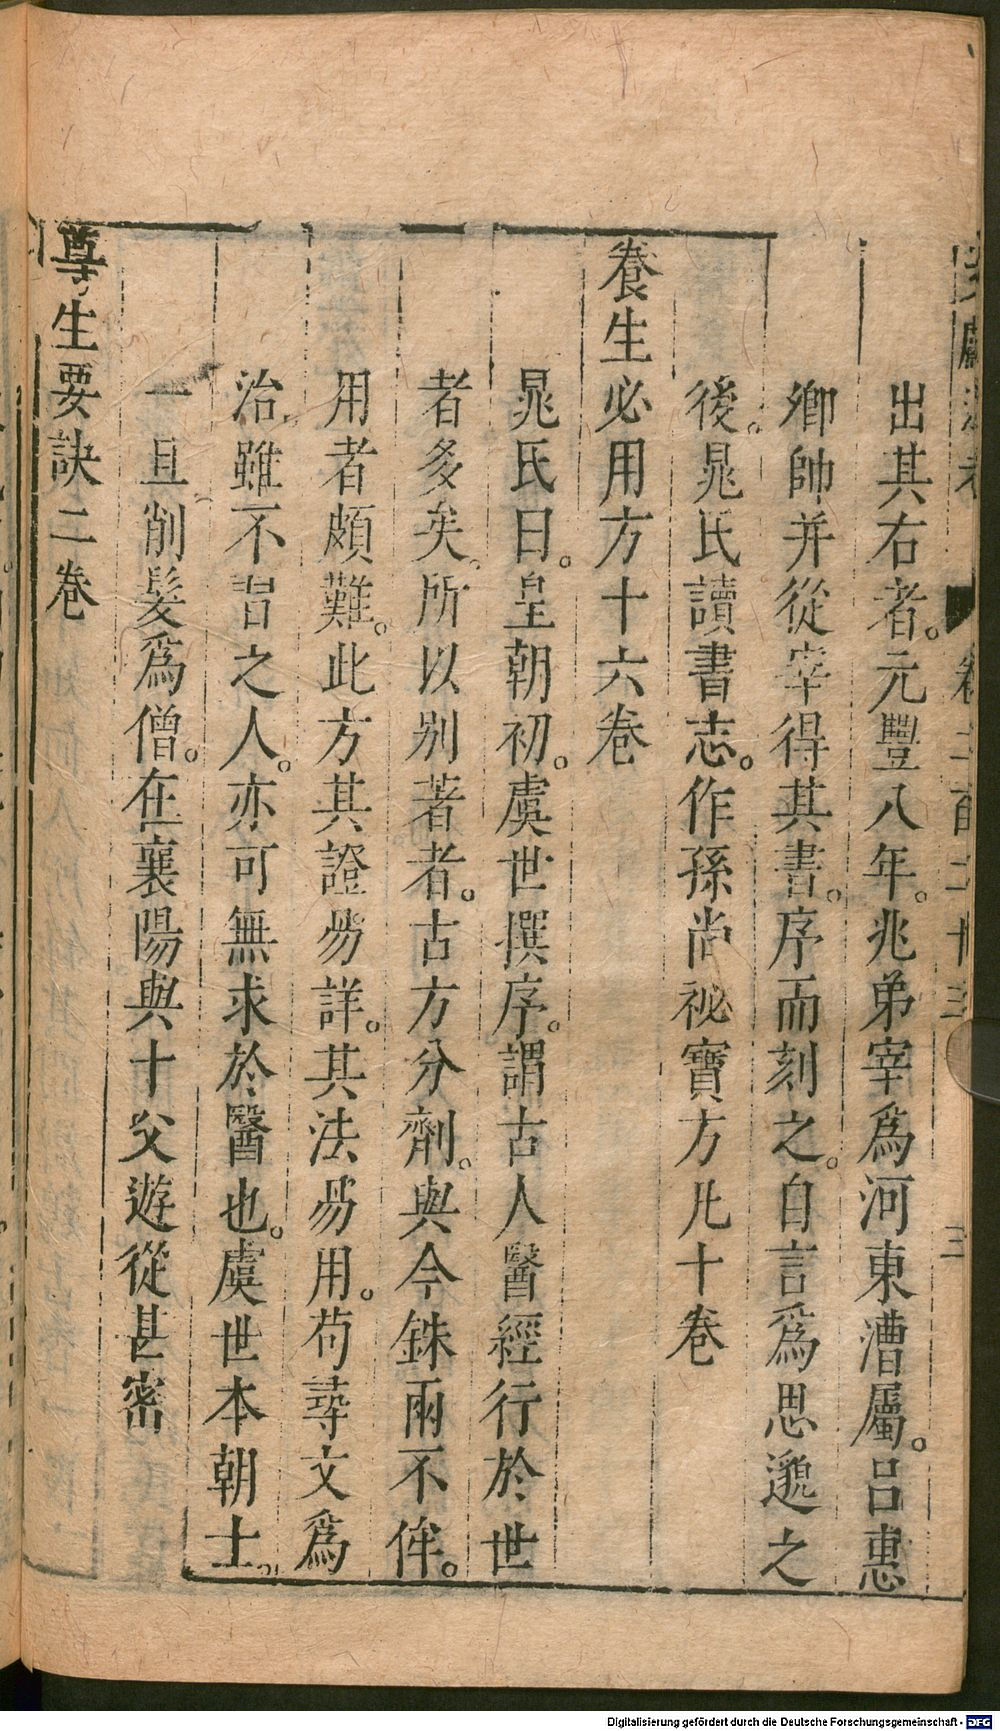 出其右者。元豐八年。兆弟宰爲河東漕屬。呂惠
卿帥并從宰得其書。序而刻之。自言爲思邈之
後。晁氏讀書志。作孫尚祕寶方凡十卷
養生必用方十六卷
晁氏曰。皇朝初。虞世撰序。謂古人醫經行於世
者多矣。所以別著者。古方分劑。與今銖兩不侔。
用者頗難。此方其證易詳。其法易用。苟尋文爲
治。雖不習之人。亦可無求於醫也。虞世本朝士。
一旦削髮爲僧。在襄陽與十父遊從甚密
尊生要訣二卷
Digitalisierung gefördert durch die Deutsche Forschungsgemeinschaft - DFG